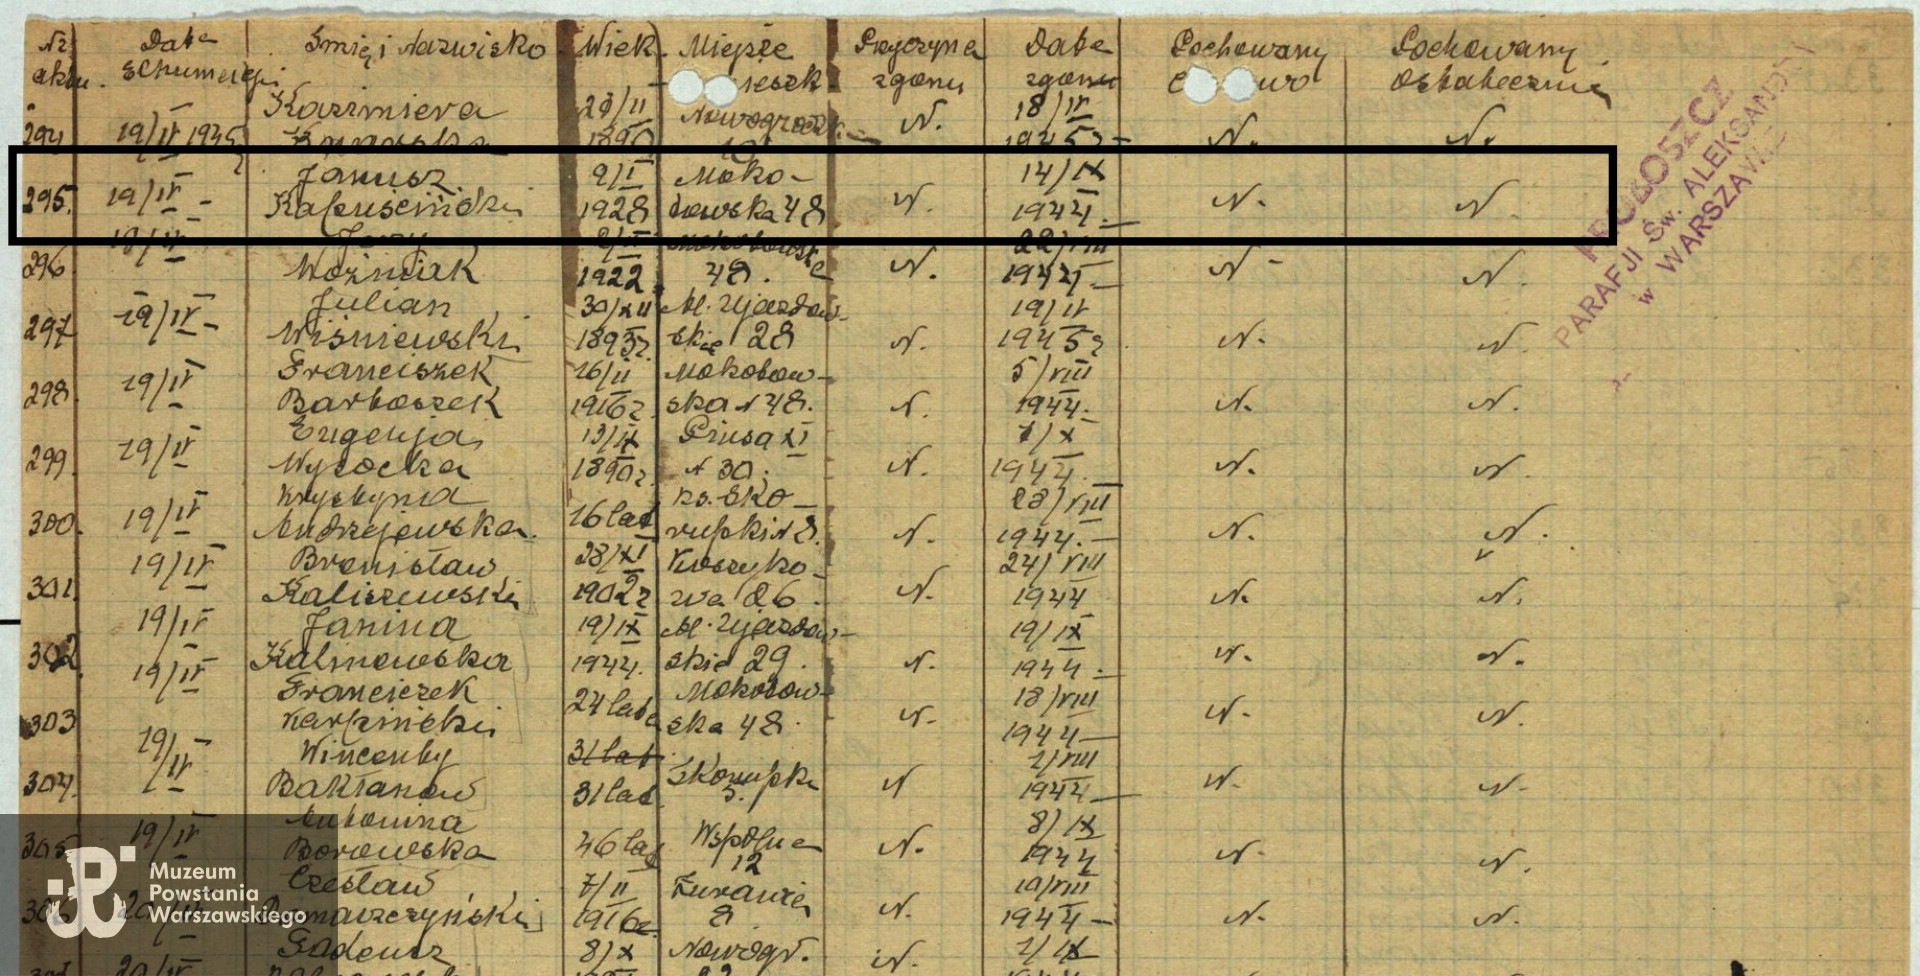 Nr aktu. Data Echumacji Imię i Nazwisko Wiek Miejsce mieszk Przyczyna zgonu Data zgonu Pochowany Pochowany Ostatecznie
294 19/IV 1945 Kazimiera 23/II 1890 Nowogrodzk N. 18/IV 1945 r N. N.
295. 19/IV - Janusz Kapuściński 9/I 1928 Moko-towska 48 N. 14/IX 1944. N. N.
296. 19/IV Jerzy Woźniak 1922 Mokotowska 48. N. 22/VIII 1944 N - N.
297 19/IV - Julian Wiśniewski 30/XII 1893 r. Al. Ujazdow-skie 28 N. 19/IV 1945 r N. N.
298. 19/IV Franciszek Bartoszek 16/II 1916 r. Mokotow-ska N 48. N. 5/VIII 1944. N. N.
299. 19/IV Eugenja Wysocka 13/IX 1890 r. Prusa XI N 30. N. 1/X 1944. N. N.
300. 19/IV Krystyna Andrzejewska. 16 lat ks. Sko-rupki N 8. N. 28/VIII 1944. N. N.
301. 19/IV Bronisław Kaliszewski 28/XI 1902 r Koszyko-wa 86. N. 24/VIII 1944 N. N.
302. 19/IV Janina Kalinowska 19/IX 1944. Al. Ujazdow-skie 29. N. 19/IX 1944. N. N.
303 19/IV Franciszek Karpiński 24 lata Mokotow-ska 48. N. 18/VIII 1944 N. N.
304. 19/IV Wincenty Bakłanow 31 lat 31 lat. Skorupki 5. N 1/VIII 1944 N. N.
305 19/IV Antonina Borowska 46 lat Wspólna 12 N. 8/IX 1944 N. N.
306 20/IV Czesław Domaszczyński 7/II 1916 r. Żurawia 8 N. 19/VIII 1944 N. N.
20/IV Tadeusz 8/X Nowogr. N. 1/IX
PROBOSZCZ
PARAFJI Św. ALEKSANDRA
w WARSZAWIE
Muzeum
Powstania
Warszawskiego